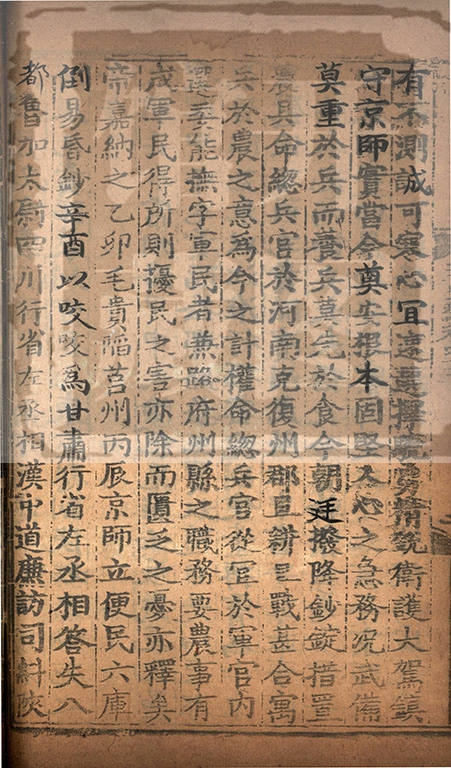 有不測誠可寒心冝遠選擇驍勇精銳衛護大駕鎮
守京師實當今奠安根本固堅人心之急務況武備
莫重於兵而養兵莫先於食今朝廷撥降鈔錠措置
農具命緫兵官於河南克復州郡且耕且戰甚合寓
兵於農之意為今之計權命緫兵官從冝於軍官內
選委能撫字軍民者兼路府州縣之職務要農事有
成軍民得所則擾民之害亦除而匱乏之憂亦釋矣
帝嘉納之乙卯毛貴陷莒州丙辰京師立便民六庫
倒易昏鈔辛酉以咬咬爲甘肅行省左丞相答失八
都魯加太尉四川行省左丞相漢中道廉訪司糾陝